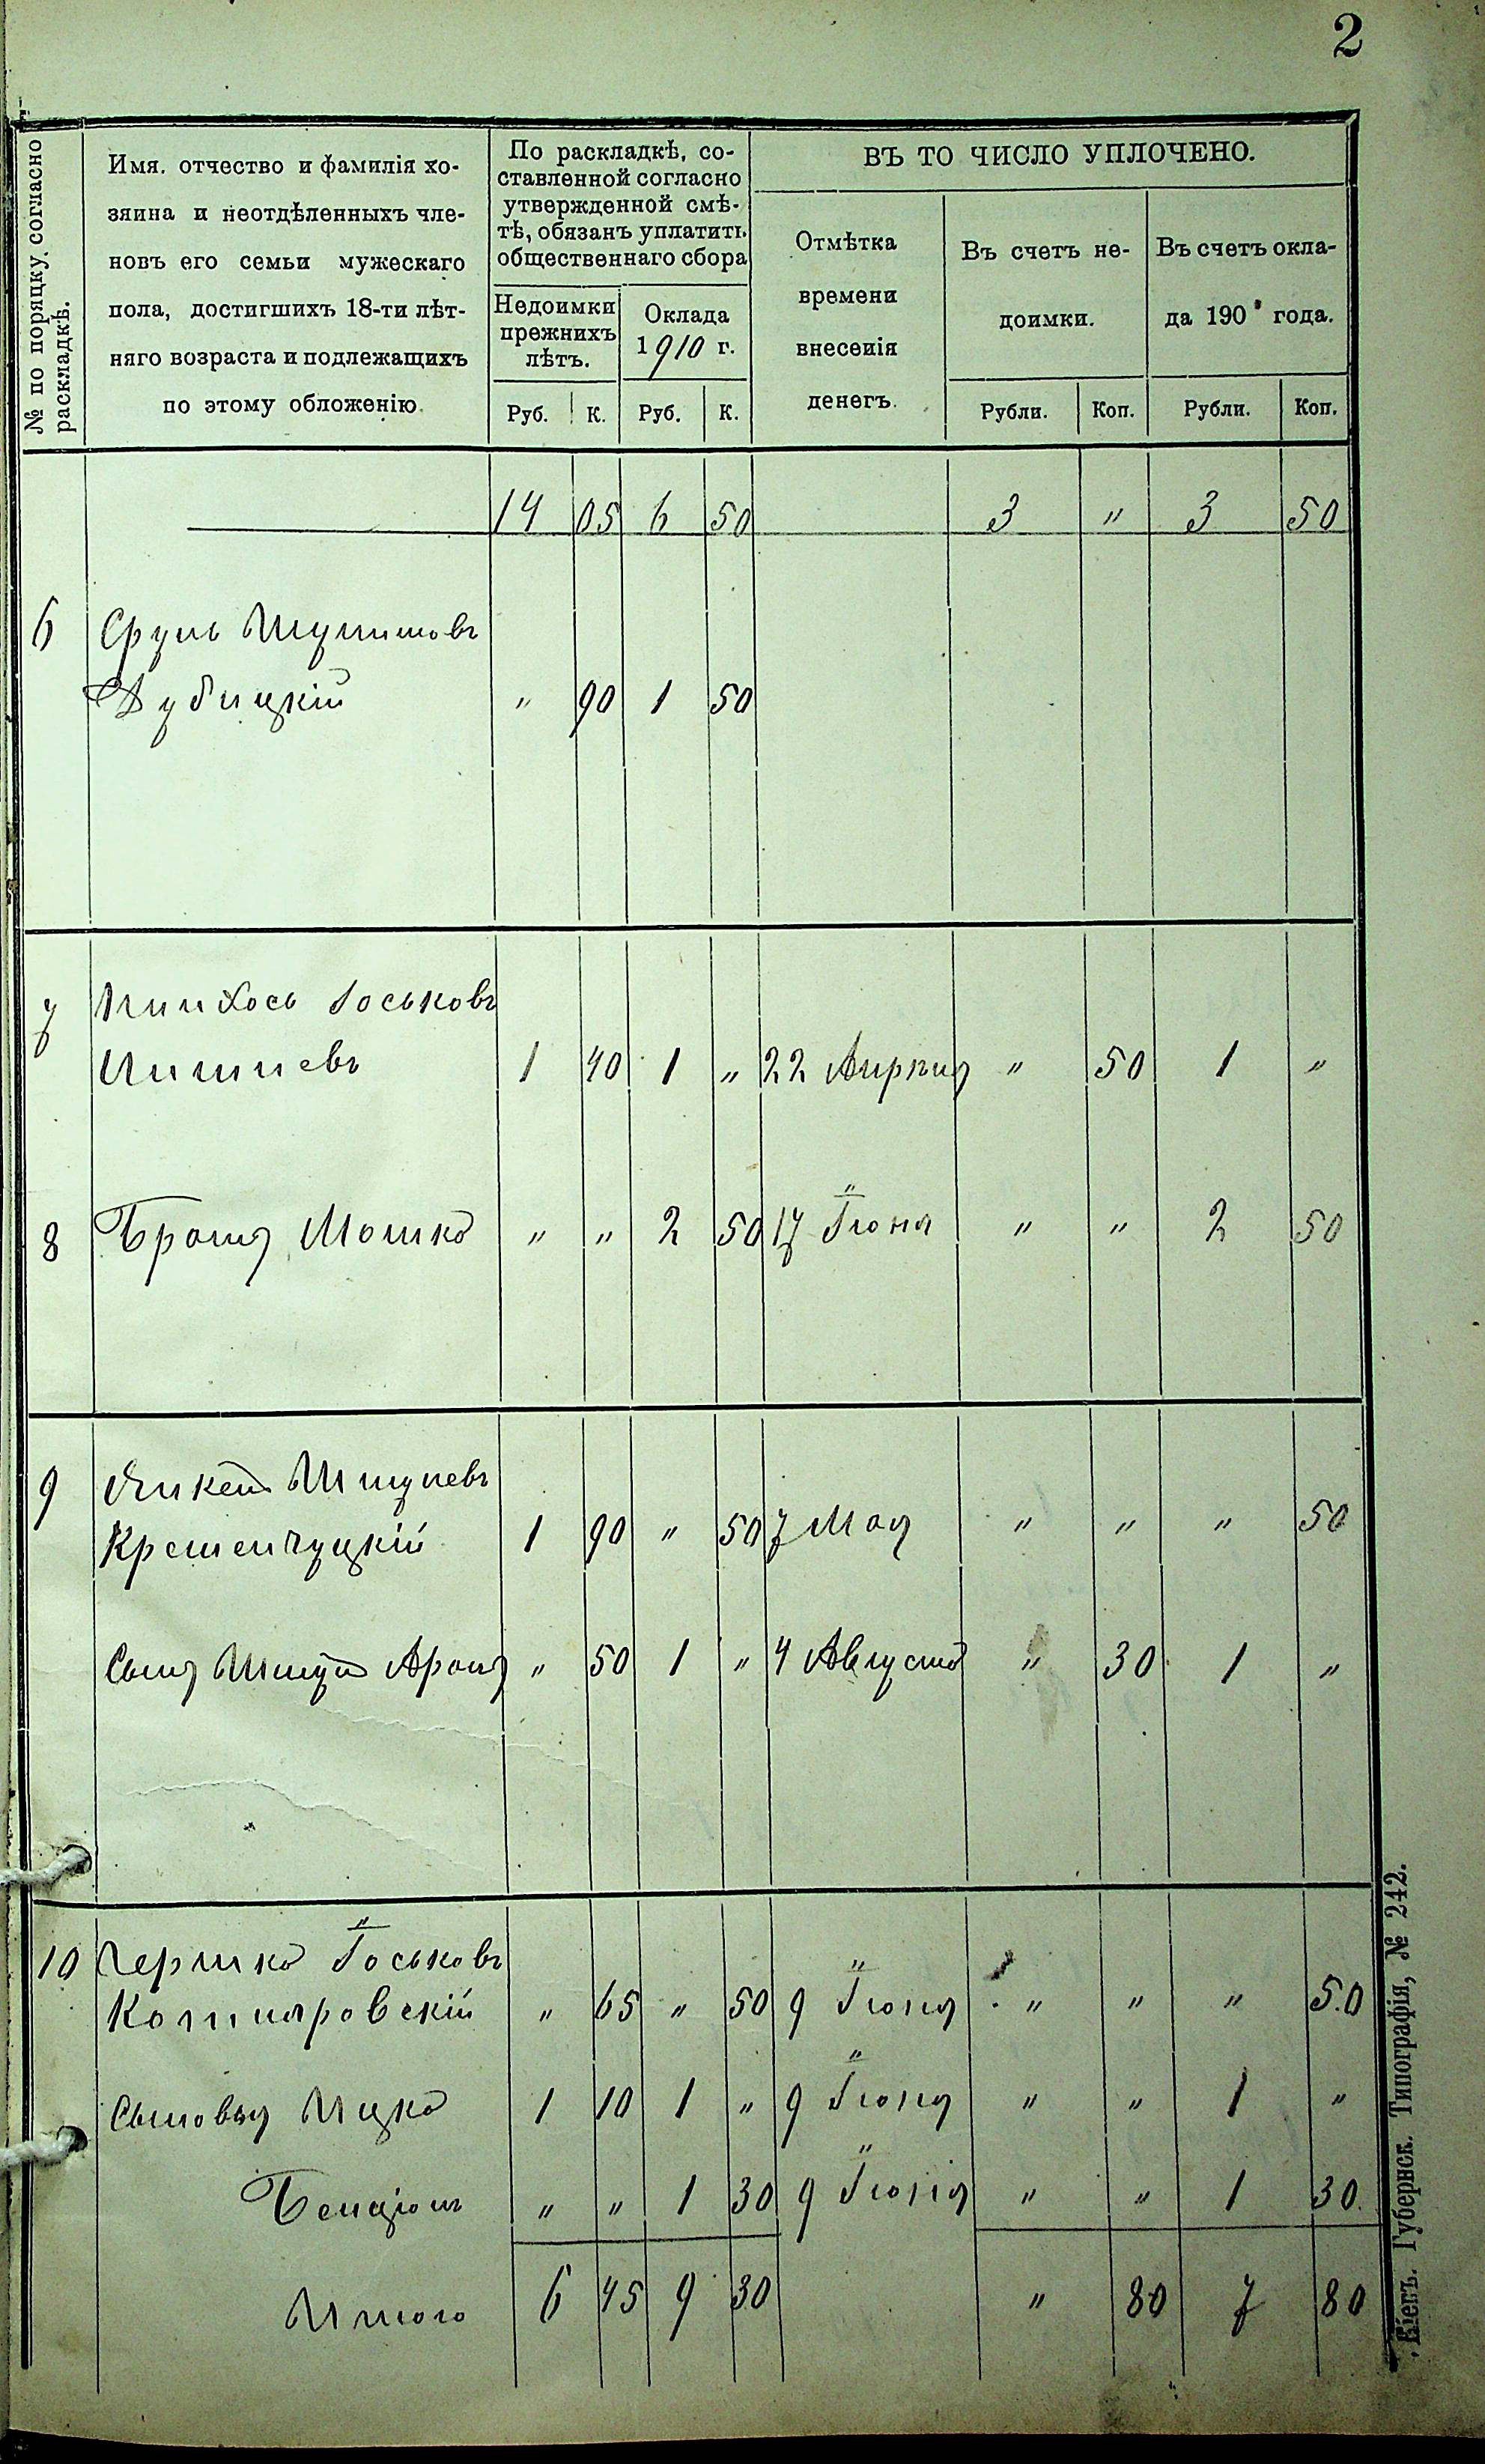 2
№ по порядку, согласно раскладкѣ.
Имя. отчество и фамилія хо-
зяина и неотдѣленныхъ чле-
новъ его семьи мужескаго
пола, достигшихъ 18-ти лѣт-
няго возраста и подлежащихъ
по этому обложенію.
По раскладкѣ, со-
ставленной согласно
утвержденной смѣ-
тѣ, обязанъ уплатить
общественнаго сбора
Недоимки
прежнихъ
лѣтъ.
Оклада
1910 г.
Руб. К. Руб. К.
ВЪ ТО ЧИСЛО УПЛОЧЕНО.
Отмѣтка
времени
внесенія
денегъ.
Въ счетъ не-
доимки.
Въ счетъ окла-
да 190 года.
Рубли. Коп. Рубли. Коп.
14 05 6 50 3 " 3 50
6 Сруль
Дубицкій " 90 1 50
7 Пинхось Іоськовъ
1 40 1 " 22 Апрѣля " 50 1 "
8 Братъ Мошко " " 2 50 17 Іюня " " 2 50
9
Кременчуцкій 1 90 " 50 7 Мая " " " 50
Сынъ Аронъ " 50 1 " 4 Августа " 30 1 "
10 Гершко Іоськовъ
Котляровскій " 65 " 50 9 Іюня " " " 50
Сыновья Ицко 1 10 1 " 9 Іюня " " 1 "
Бенціонъ " " 1 30 9 Іюня " " 1 30
Итого 6 45 9 30 " 80 7 80
Кіевъ. Губернск. Типографія, № 242.